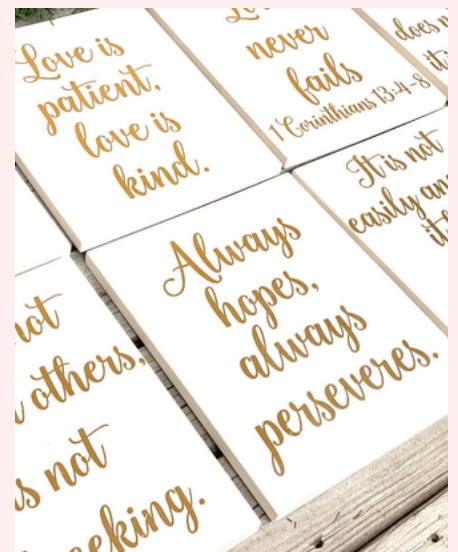 Love is
patient,
love is
kind.
never
fails
1 Corinthians 13:4-8
does
it
It is not
easily
Always
hopes,
always
perseveres.
not
others,
not